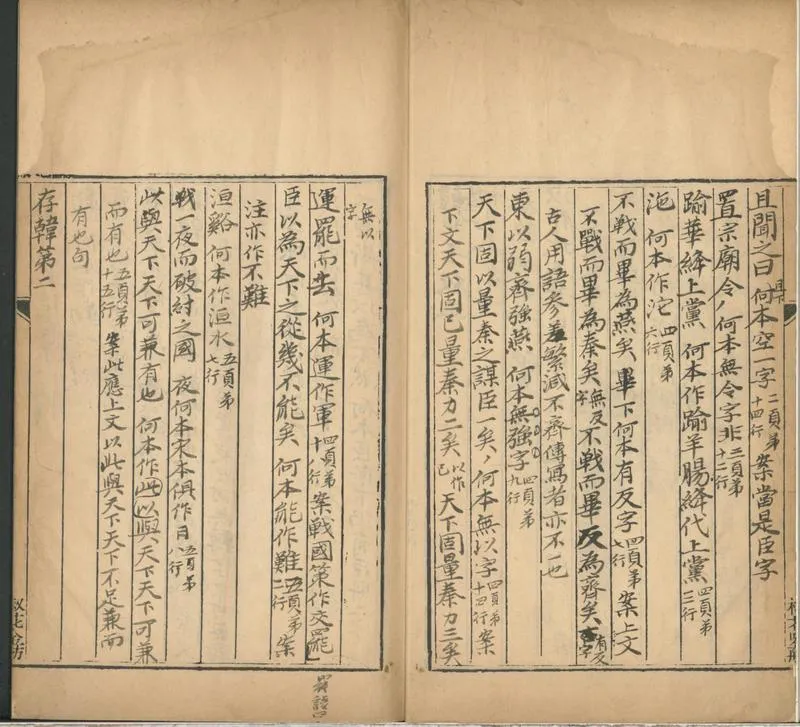 且聞之曰 何本空一字 二頁弟十四行 案當是臣字
置宗廟令 何本無令字非 三頁弟十二行
踰華絳上黨 何本作踰羊腸絳代上黨 四頁弟三行
沲 何本作沱 四頁弟六行
不戰而畢為燕矣 畢下何本有反字 四頁弟七行 案上文
不戰而畢為秦矣 無反字 不戰而畢反為齊矣 有反字
古人用語參差繁減不齊傳寫者亦不一也
東以弱齊強燕 何本無強字 四頁弟九行
天下固以量秦之謀臣一矣 何本無以字 四頁弟十四行 案
下文天下固已量秦力二矣 以作已 天下固量秦力三矣
無以字
運罷而去 何本運作軍 四頁弟十行 案戰國策作交罷
臣以為天下之從幾不能矣 何本能作難 五頁弟二行 案
注亦作不難
洹谿 何本作洹水 五頁弟七行
戰一夜而破紂之國 夜何本宋本俱作日 五頁弟八行
此與天下天下可兼有也 何本作此以與天下天下可兼
而有也 五頁弟十五行 案此應上文以此與天下天下不足兼而
有也句
存韓第二